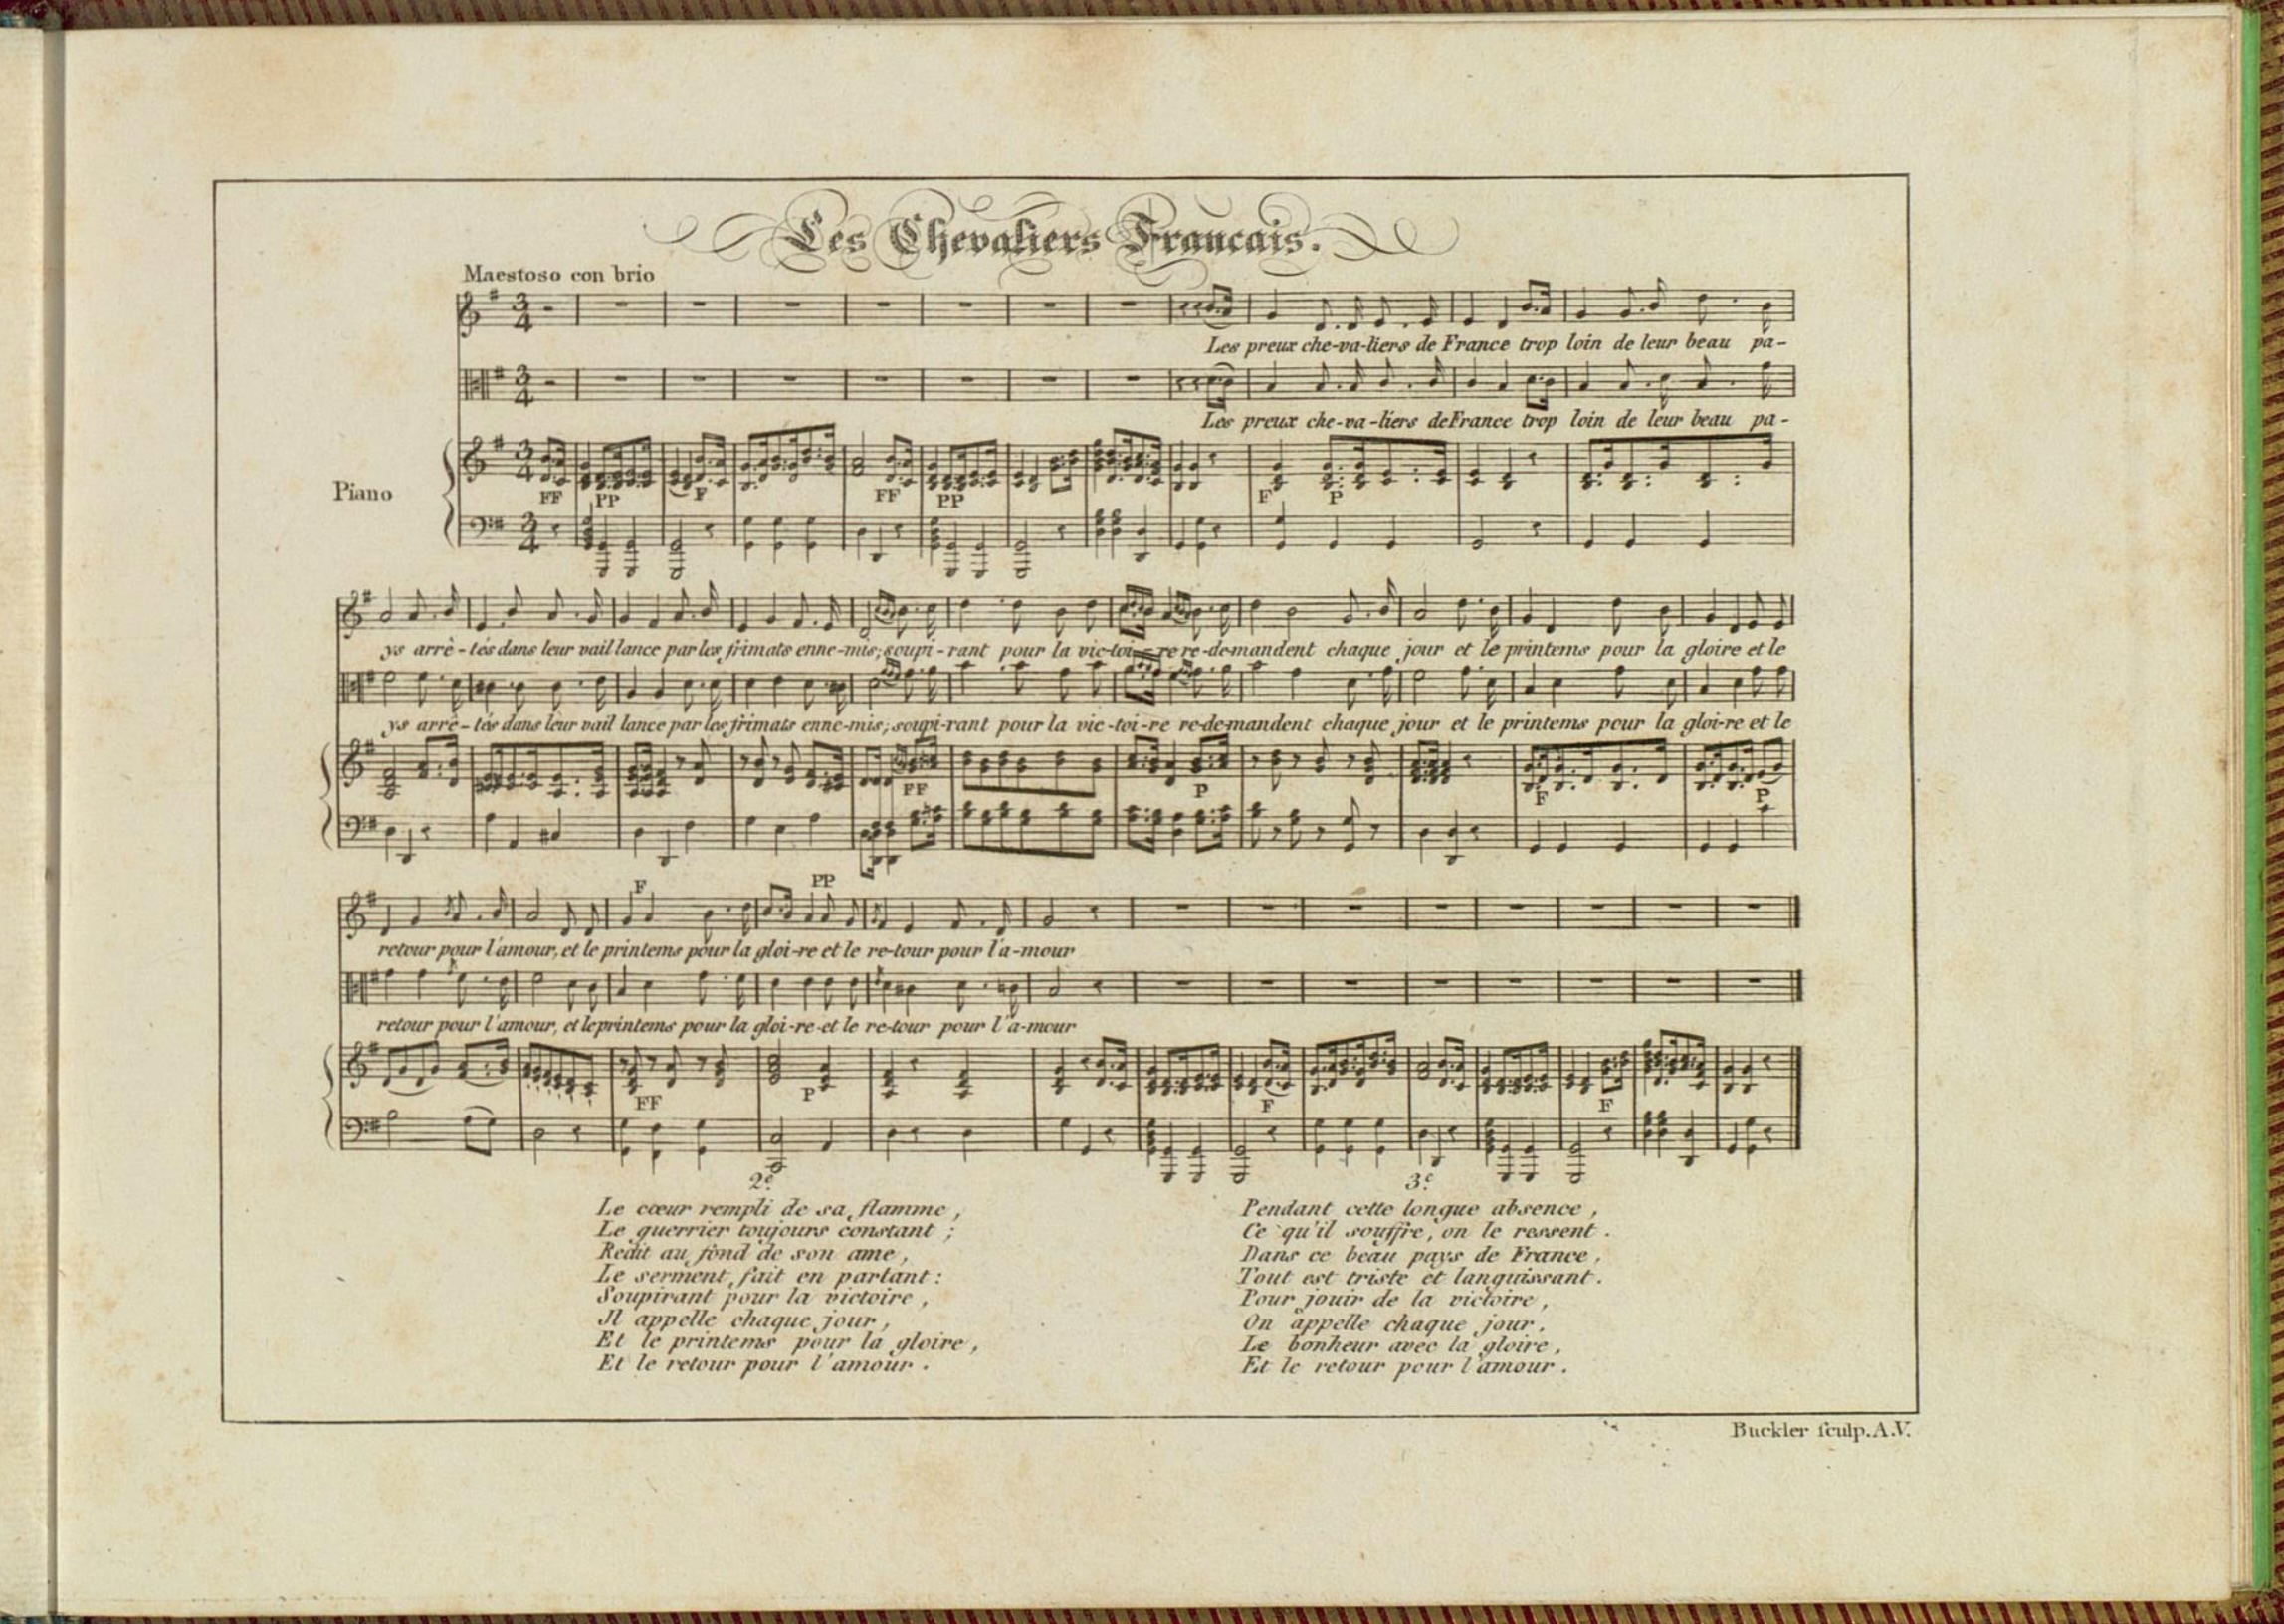 Les Chevaliers Francais.
Maestoso con brio
Les preux che-va-liers de France trop loin de leur beau pa-
Les preux che-va-liers de France trop loin de leur beau pa-
Piano
FF PP F FF PP F P
ys arrè-tés dans leur vail lance par les frimats enne-mis; soupi-rant pour la vic-toi-re re-demandent chaque jour et le printems pour la gloire et le
ys arrè-tés dans leur vail lance par les frimats enne-mis; soupi-rant pour la vic-toi-re re-demandent chaque jour et le printems pour la gloi-re et le
FF P F P
F PP
retour pour l'amour, et le printems pour la gloi-re et le re-tour pour l'a-mour
retour pour l'amour, et le printems pour la gloi-re et le re-tour pour l'a-mour
FF P F F
2e.
Le cœur rempli de sa flamme,
Le guerrier toujours constant;
Redit au fond de son ame,
Le serment fait en partant:
Soupirant pour la victoire,
Il appelle chaque jour,
Et le printems pour la gloire,
Et le retour pour l'amour.
3e.
Pendant cette longue absence,
Ce qu'il souffre, on le ressent.
Dans ce beau pays de France,
Tout est triste et languissant.
Pour jouir de la victoire,
On appelle chaque jour,
Le bonheur avec la gloire,
Et le retour pour l'amour.
Buckler sculp. A.V.